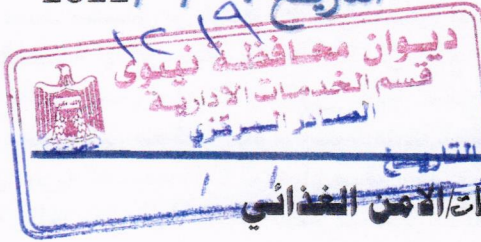 التاريخ / /
١٢١٩
ديوان محافظة نينوى
قسم الخدمات الادارية
الصادر المركزي
التاريخ
/ /
ات/الامن الغذائي